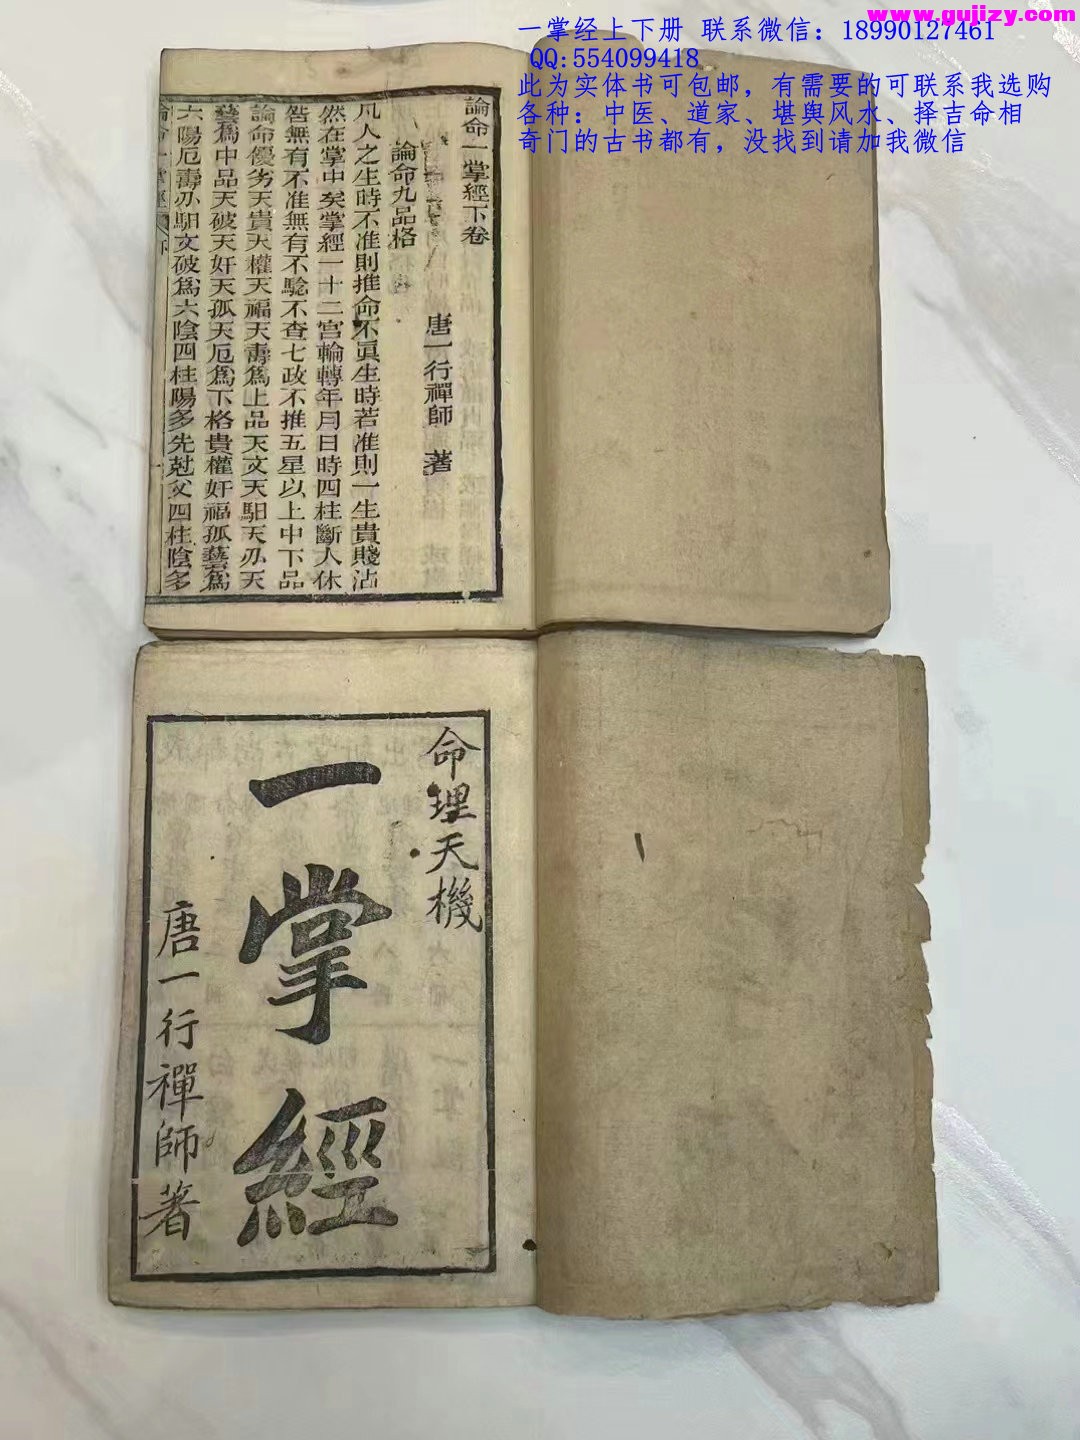 www.gujizy.com
一掌经上下册 联系微信：18990127461
QQ:554099418
此为实体书可包邮，有需要的可联系我选购
各种：中医、道家、堪舆风水、择吉命相
奇门的古书都有，没找到请加我微信
論命一掌經下卷
唐一行禪師 著
論命九品格
凡人之生時不准則推命不眞生時若准則一生貴賤沾
然在掌中矣掌經一十二宮輪轉年月日時四柱斷人休
咎無有不准無有不驗不查七政不推五星以上中下品
論命優劣天貴天權天福天壽爲上品天文天馹天刅天
藝爲中品天破天奸天孤天厄爲下格貴權奸福孤藝爲
六陽厄壽刅馹文破爲六陰四柱陽多先尅父四柱陰多
論命一掌經
命理天機
一掌經
唐一行禪師著